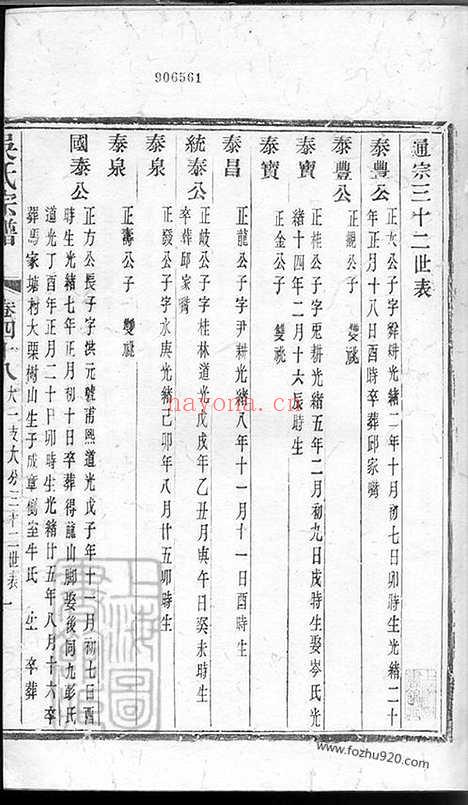 906561
通宗三十二世表
泰豐公
正衣公子字舜耕光緒二年十月初七日卯時生光緒二十
年正月十八日酉時卒葬邱家嘴
泰豐公
正覲公子 雙祧
泰寶
正桂公子字兎耕光緒五年二月初九日戌時生娶岑氏光
緒十四年二月十六辰時生
泰寶
正金公子 雙祧
泰昌
正龍公子字尹耕光緒八年十一月十一日酉時生
統泰公
正岐公子字桂林道光戊戌年乙丑月庚午日癸未時生
卒葬邱家嘴
泰泉
正發公子字水庚光緒己卯年八月廿五卯時生
泰泉
正壽公子 雙祧
國泰公
正方公長子字洪元號甫熙道光戊子年十一月初七日酉
時生光緒七年正月初十日卒葬得龍山脚娶後同九彭氏
道光丁酉年正月二十日卯時生光緒廿五年八月十六卒
葬馬家塘村大栗樹山生子成章側室牛氏 生 卒葬
吳氏宗譜
卷四十八
大一支大分三十二世表 一
上海圖
nayona.cn
www.fozhu920.com